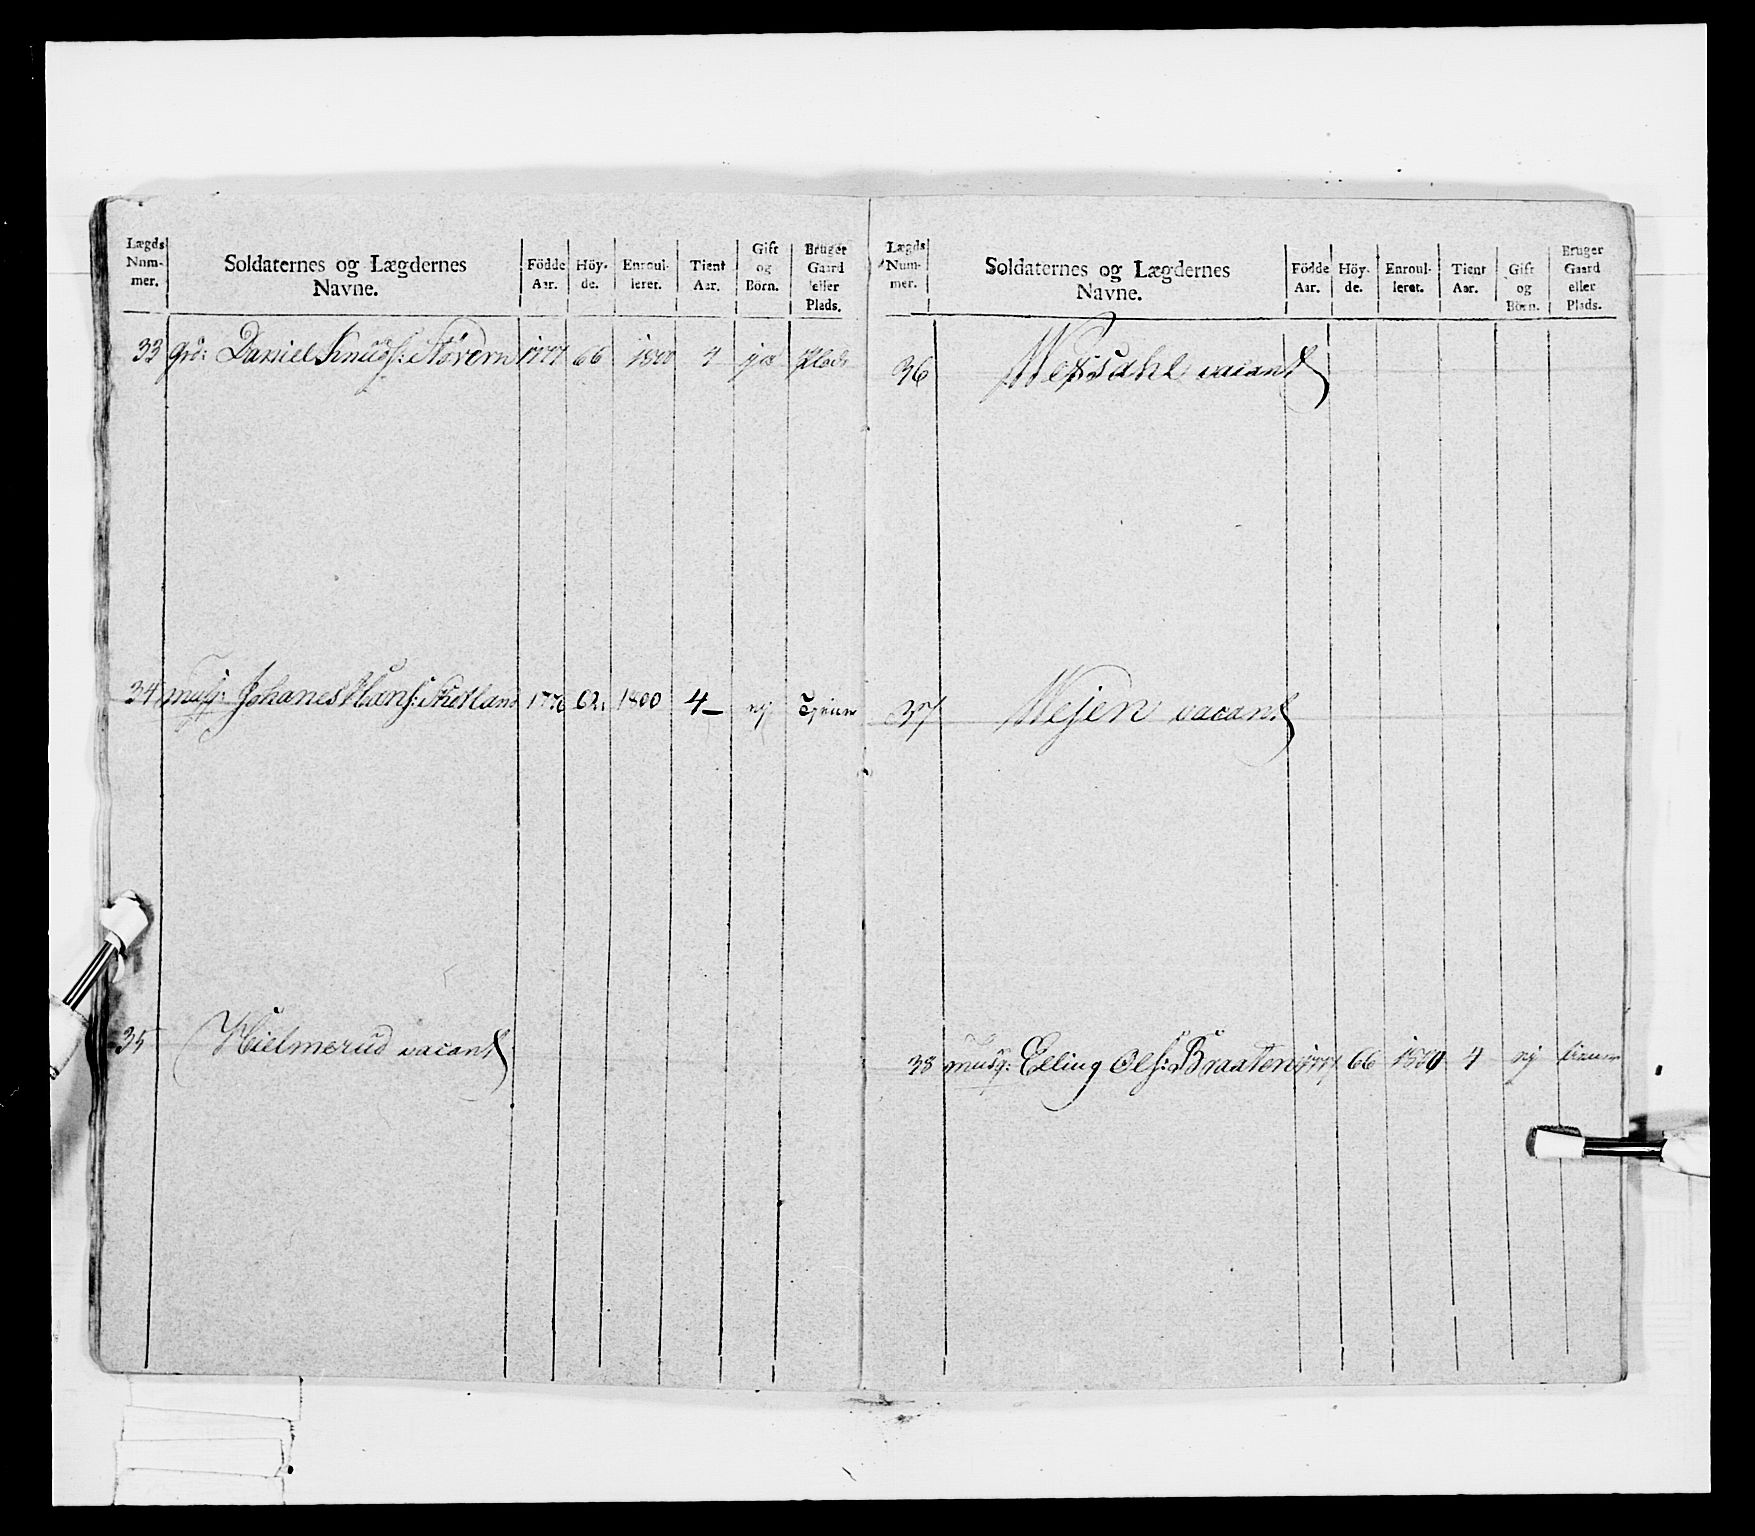 Lægds Num- mer. Soldaternes og Lægdernes Navne. Födde Aar. Höy- de. Enroul- leret. Tient Aar. Gift og Börn. Bruger Gaard eller Plads.
33 grd: Daniel Knuds: 1777 66 1800 4 ja Plads
34 musq: Johanes Hans: Skotland 1776 62. 1800 4 ej Tjener
35 Hielmerud vacant
Lægds Num- mer. Soldaternes og Lægdernes Navne. Födde Aar. Höy- de. Enroul- leret. Tient Aar. Gift og Börn. Bruger Gaard eller Plads.
36 vacant
37 Wejen vacant
38 musq: Elling Ols: Braaten 1777 66 1800 4 ej tiener